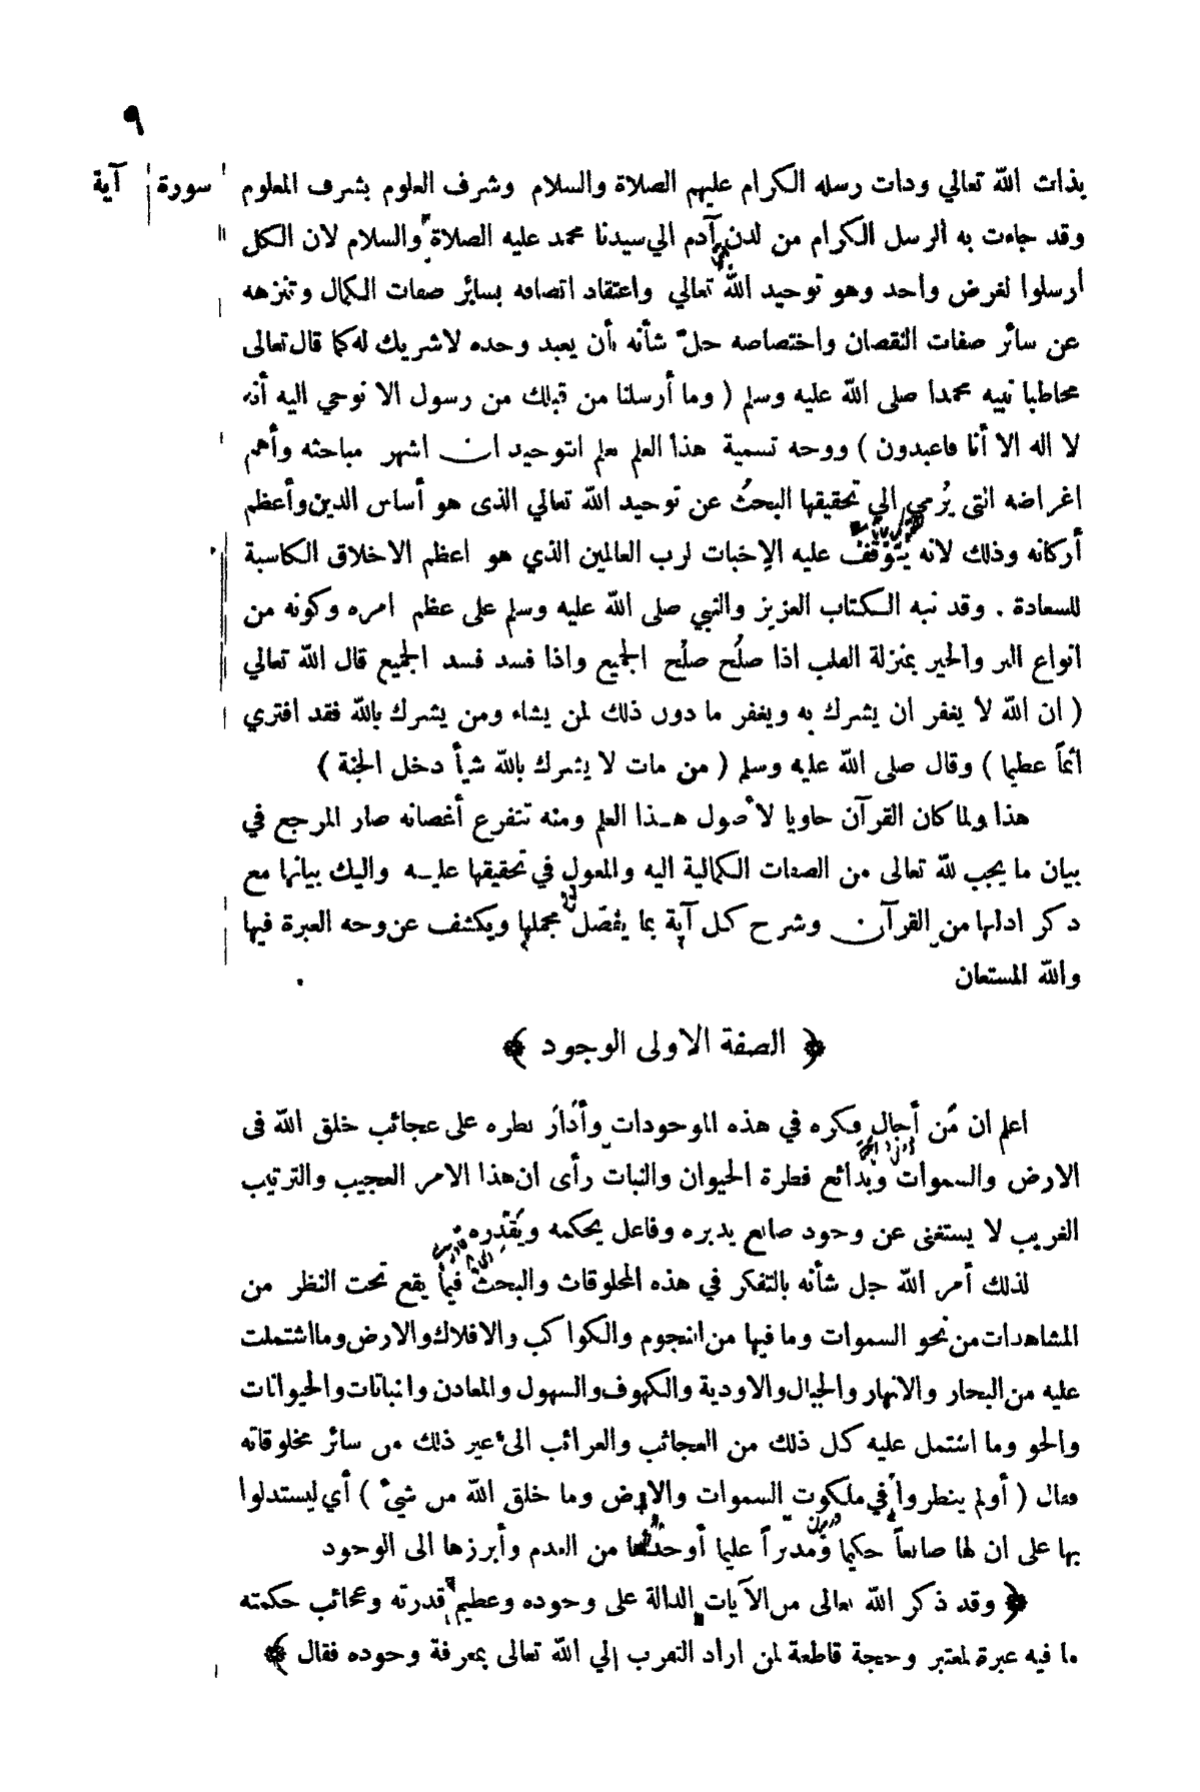 ٩
سورة آية
بذات الله تعالي وذات رسله الكرام عليهم الصلاة والسلام وشرف العلوم بشرف المعلوم
وقد جاءت به الرسل الكرام من لدن آدم الي سيدنا محمد عليه الصلاة والسلام لان الكل
أرسلوا لغرض واحد وهو توحيد الله تعالي واعتقاد اتصافه بسائر صفات الكمال وتنزهه
عن سائر صفات النقصان واختصاصه جل شأنه بأن يعبد وحده لاشريك له كما قال تعالى
مخاطبا نبيه محمدا صلى الله عليه وسلم ( وما أرسلنا من قبلك من رسول الا نوحي اليه أنه
لا اله الا أنا فاعبدون ) ووجه تسمية هذا العلم بعلم التوحيد ان اشهر مباحثه وأهم
اغراضه التى يُرمي الي تحقيقها البحثُ عن توحيد الله تعالي الذى هو أساس الدين وأعظم
أركانه وذلك لانه يتوقفُ عليه الإخبات لرب العالمين الذي هو اعظم الاخلاق الكاسبة
للسعادة . وقد نبه الكتاب العزيز والنبي صلى الله عليه وسلم على عظم امره وكونه من
انواع البر والخير بمنزلة القلب اذا صلُح صلُح الجميع واذا فسد فسد الجميع قال الله تعالي
( ان الله لا يغفر ان يشرك به ويغفر ما دون ذلك لمن يشاء ومن يشرك بالله فقد افتري
اثماً عظيما ) وقال صلى الله عليه وسلم ( من مات لا يشرك بالله شيأ دخل الجنة )
هذا ولما كان القرآن حاويا لأصول هذا العلم ومنه تتفرع أغصانه صار المرجع في
بيان ما يجب لله تعالى من الصفات الكمالية اليه والمعول في تحقيقها عليه واليك بيانها مع
ذكر ادلتها من القرآن وشرح كل آية بما يفصّل مجملها ويكشف عن وجه العبرة فيها
والله المستعان
﴿ الصفة الاولى الوجود ﴾
اعلم ان مَن أجال فكره في هذه الموجودات وأدَارَ نظره على عجائب خلق الله فى
الارض والسموات وبدائع فطرة الحيوان والنبات رأى ان هذا الامر العجيب والترتيب
الغريب لا يستغنى عن وجود صانع يدبره وفاعل يحكمه ويُقدّره
لذلك أمر الله جل شأنه بالتفكر في هذه المخلوقات والبحث فيما يقع تحت النظر من
المشاهدات من نحو السموات وما فيها من النجوم والكواكب والافلاك والارض وما اشتملت
عليه من البحار والانهار والجبال والاودية والكهوف والسهول والمعادن والنباتات والحيوانات
والجو وما اشتمل عليه كل ذلك من العجائب والغرائب الى غير ذلك من سائر مخلوقاته
فقال ( أولم ينظروا في ملكوت السموات والارض وما خلق الله من شيئ ) أي ليستدلوا
بها على ان لها صانعاً حكيما ومدبراً عليما أوجدها من العدم وأبرزها الى الوجود
﴿ وقد ذكر الله تعالى من الآيات الدالة على وجوده وعظيم قدرته وعجائب حكمته
ما فيه عبرة لمعتبر وحجة قاطعة لمن اراد التقرب إلي الله تعالى بمعرفة وجوده فقال ﴾